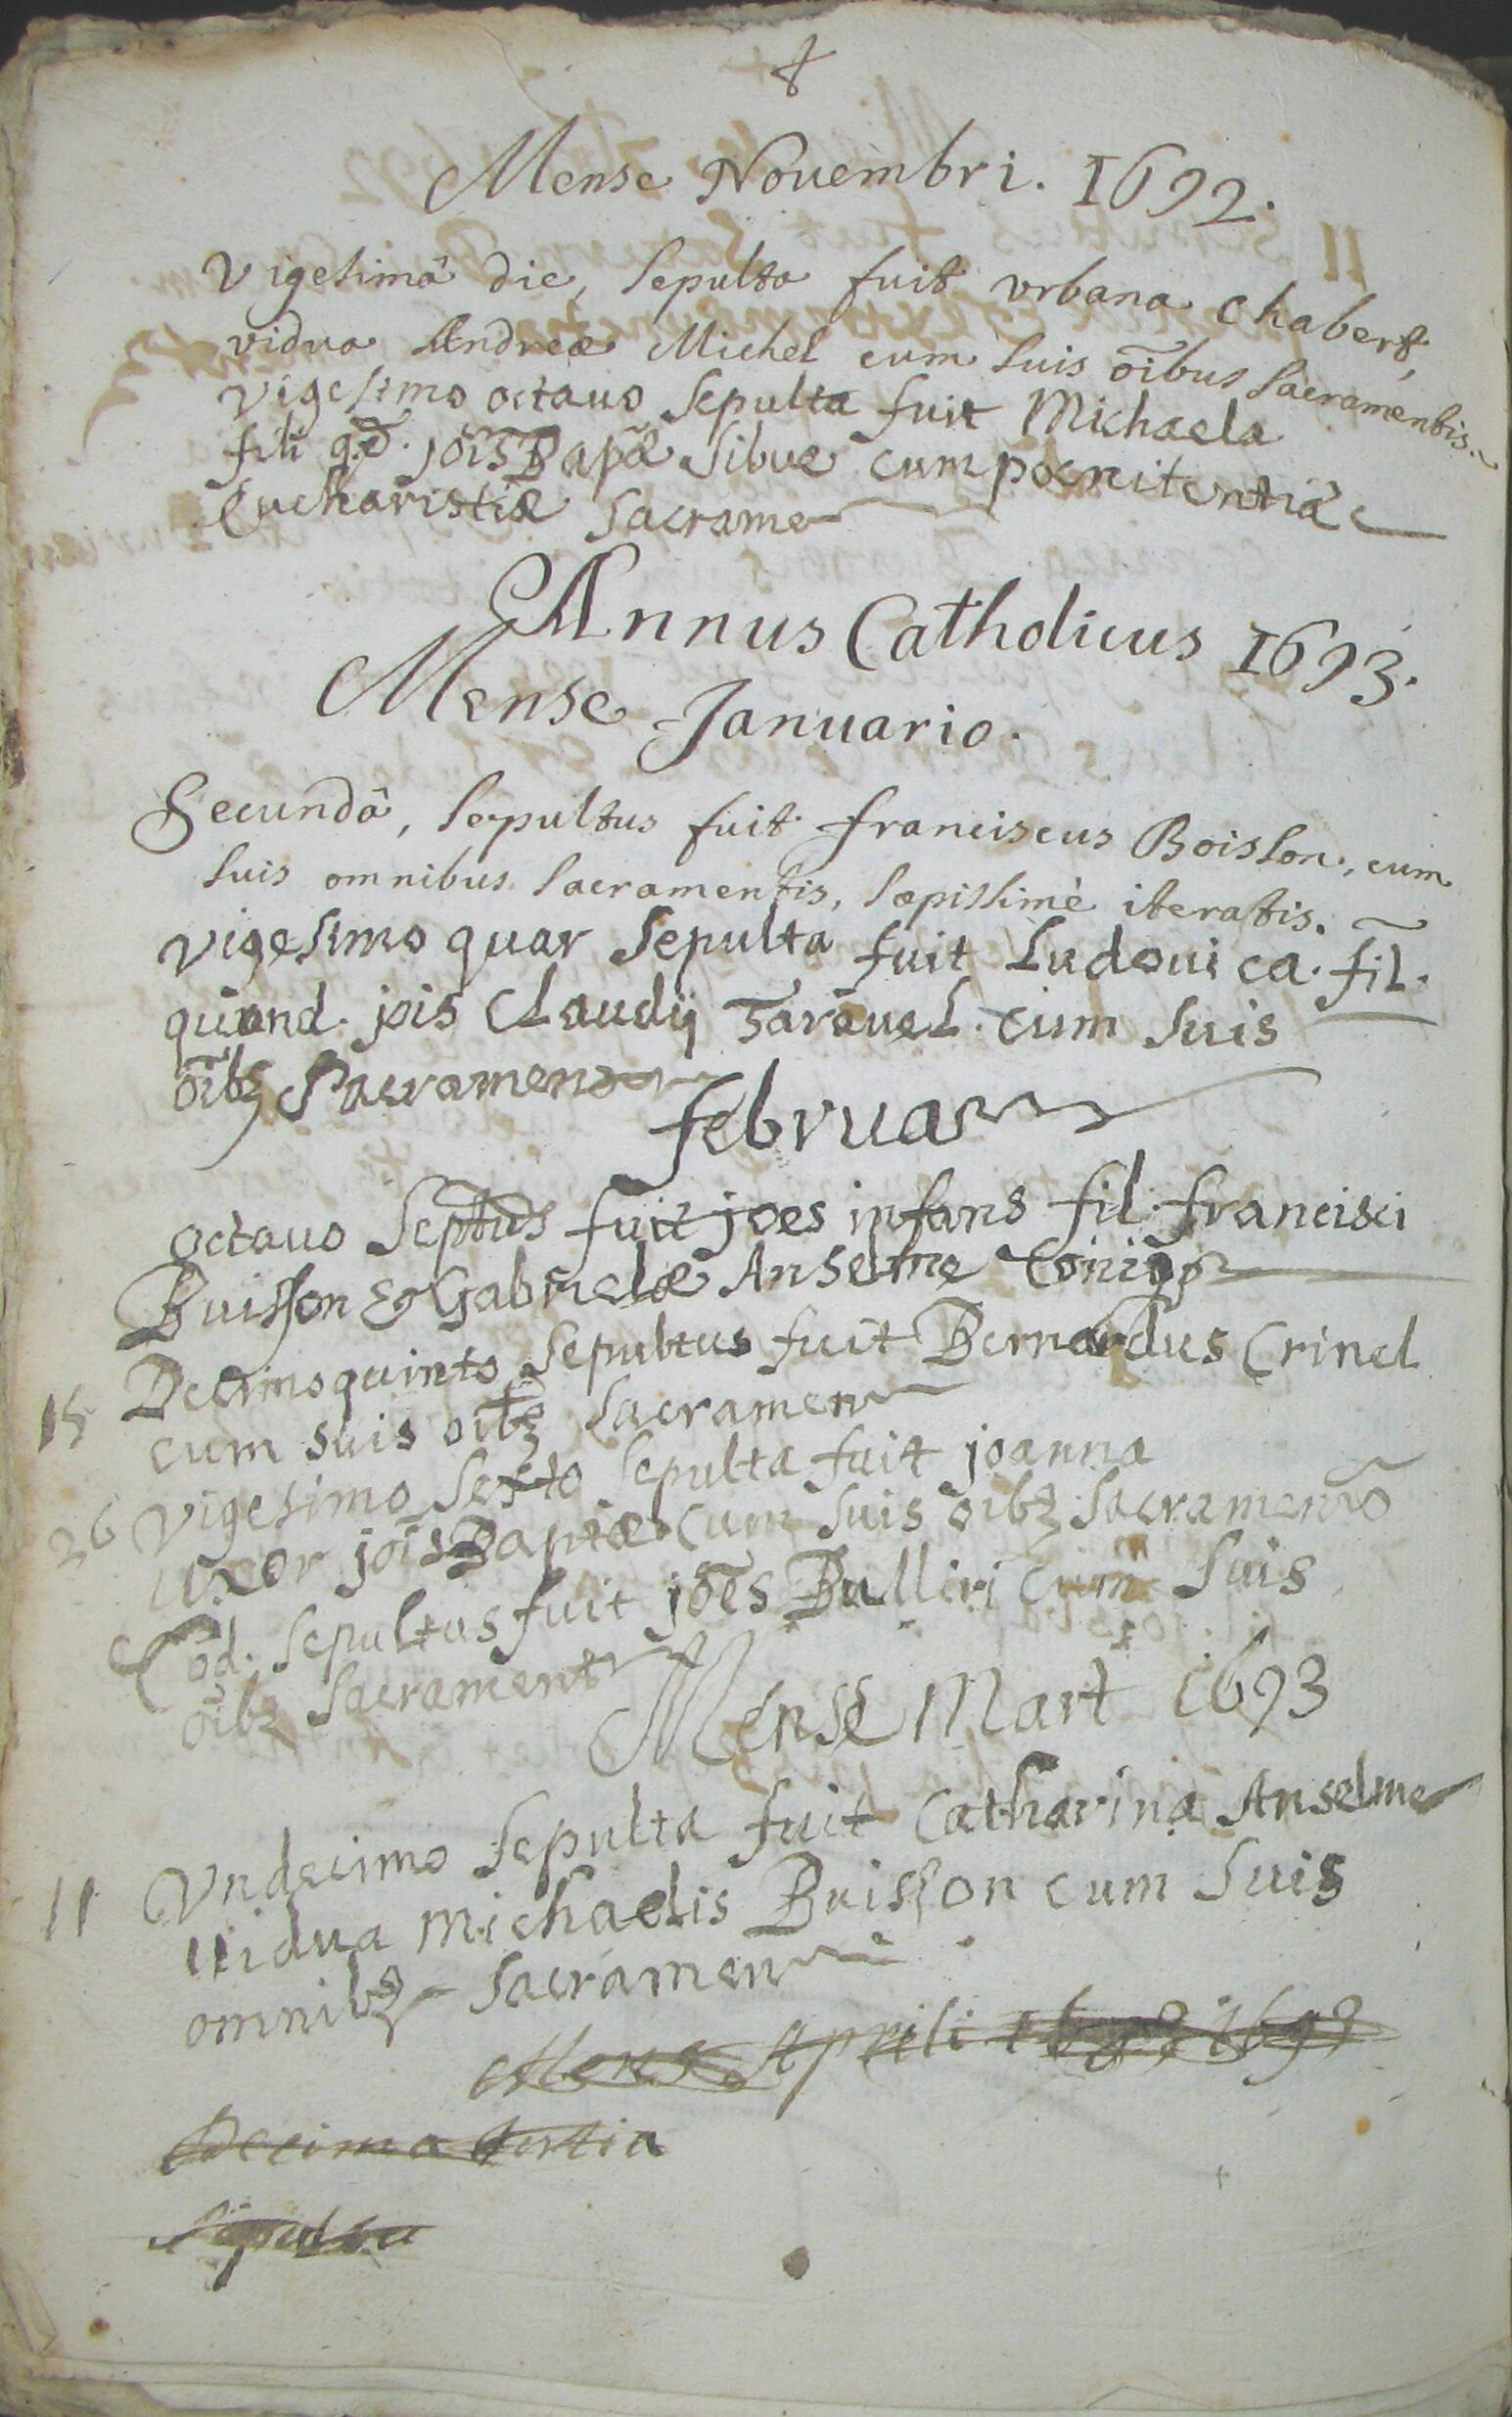 Mense Nouembri. 1692.
Vigesimâ die, sepulta fuit vrbana Chabert,
vidua Andreæ Michel cum suis oībus sacramentis.
Vigesimo octauo sepulta fuit Michaela
fili qd. joīs Bapæ Sibue cum poenitentiæ
Eucharistiæ sacrame
Annus Catholicus 1693.
Mense Januario.
Secundâ, sepultus fuit franciscus Boisson, cum
suis omnibus sacramentis, sæpissimè iteratis.
vigesimo quar sepulta fuit Ludouica. fil.
quond. jois Claudij Tarauel. cum suis
oībꝫ Sacramen
februa
octauo Septus fuit joes infans fil. francisci
Buisson & Gabrielæ Anselme
15 Decimo quinto sepultus fuit Bernardus Crinel
cum suis oibꝫ sacramen
26 Vigesimo sexto sepulta fuit joanna
uxor jois Baptæ cum suis oībꝫ sacramento
Eod. sepultus fuit jōes Bulliri cum suis
oībꝫ sacrament
Mense Mart 1693
11 Vndecimo sepulta fuit Catharina Anselme
uidua michaelis Buisson cum suis
omnibꝫ sacramen
Mense Aprili 1693 1693
Decima tertia
Sepulta